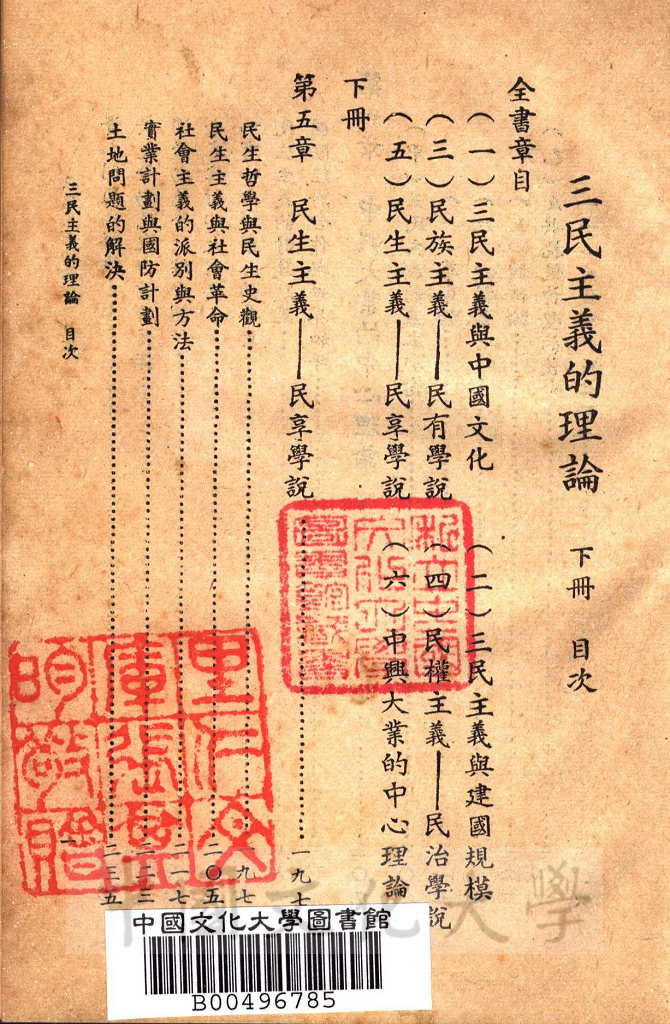 三民主義的理論 下冊 目次
全書章目
(一)三民主義與中國文化 (二)三民主義與建國規模
(三)民族主義——民有學說 (四)民權主義——民治學說
(五)民生主義——民享學說 (六)中興大業的中心理論
下冊
第五章 民生主義——民享學說…………一九七
民生哲學與民生史觀…………一九七
民生主義與社會革命…………二〇五
社會主義的派別與方法…………二一七
實業計劃與國防計劃…………二二三
土地問題的解決…………二三五
三民主義的理論 目次
中國文化大學
中國文化大學圖書館
B00496785